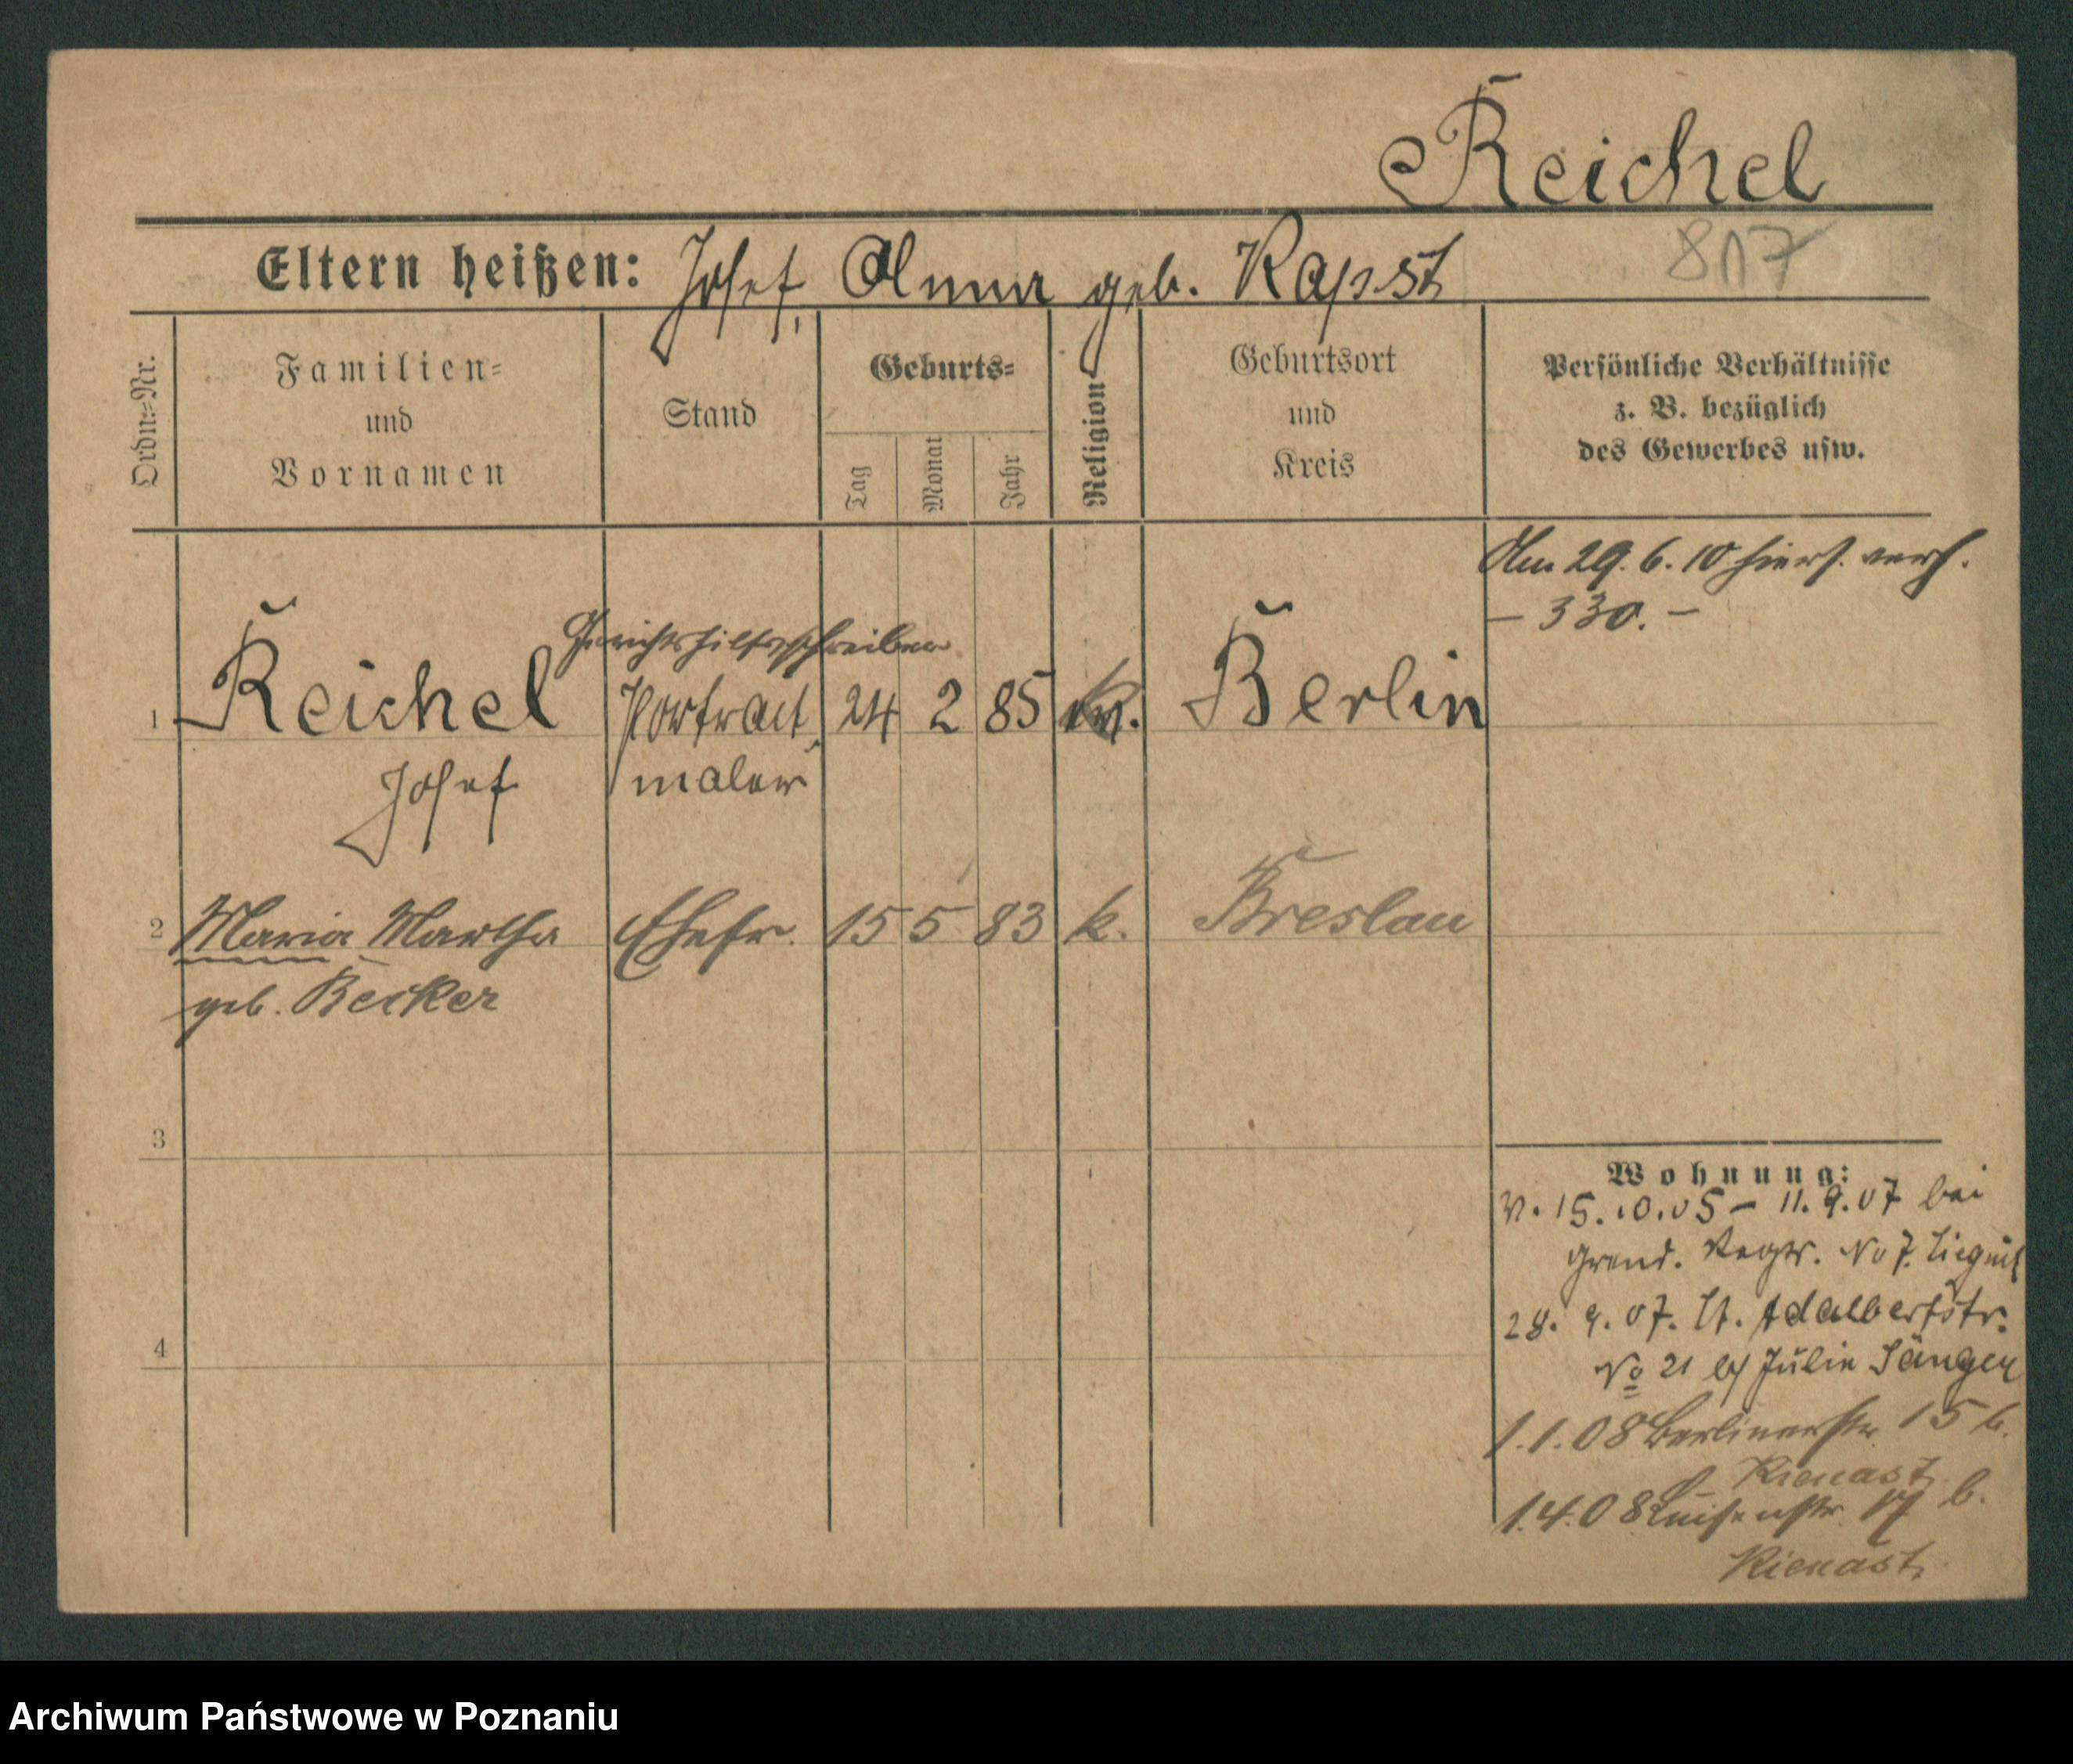 Reichel
817
Eltern heißen: Josef, Anna geb. Kapst
Ordn.=Nr.
Familien=
und
Vornamen
Stand
Geburts=
Tag
Monat
Jahr
Religion
Geburtsort
und
Kreis
Persönliche Verhältnisse
z. B. bezüglich
des Gewerbes usw.
Am 29. 6. 10 hiers.
– 330. –
Gerichtshilfsschreiber
1 Reichel Portrait 24 2 85 k. Berlin
Josef maler
2 Maria Martha Ehefr. 15 5 83 k. Breslau
geb. Becker
3
4
Wohnung:
V. 15.10.05 – 11.9.07 bei
Grend. Regtr. No 7. Liegnitz
28. 9. 07. St. Adalbertstr.
No 21 b/ Julie Sänger
1.1.08 Berlinerstr. 15 b.
Kienast
1.4.08 Luisenstr. 17 b.
Kienast
Archiwum Państwowe w Poznaniu